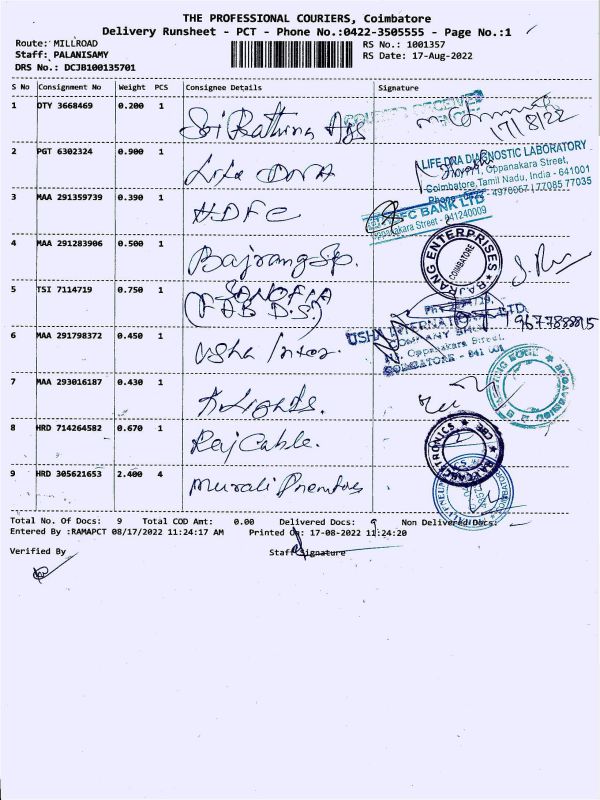 THE PROFESSIONAL COURIERS, Coimbatore
Delivery Runsheet - PCT - Phone No.:0422-3505555 - Page No.:1
Route: MILLROAD
RS No.: 1001357
Staff: PALANISAMY
RS Date: 17-Aug-2022
DRS No.: DCJB100135701
S No Consignment No Weight PCS Consignee Details Signature
1 OTY 3668469 0.200 1 Sri Rathina Ags
17/8/22
2 PGT 6302324 0.900 1 Life DNA
LIFE DNA DIAGNOSTIC LABORATORY
Oppanakara Street,
Coimbatore, Tamil Nadu, India - 641001
77085 77035
3 MAA 291359739 0.390 1 HDFC
HDFC BANK LTD
Oppanakara Street - 641240009
4 MAA 291283906 0.500 1 Bajrang Sp.
BAJRANG ENTERPRISES
COIMBATORE
5 TSI 7114719 0.750 1 SANOFIA
(FAB D.S.)
6 MAA 291798372 0.450 1 Usha Inter.
USHA INTERNATIONAL LTD.
COMPANY
Oppanakara Street,
COIMBATORE - 641 001
7 MAA 293016187 0.430 1 K Lights.
8 HRD 714264582 0.670 1 Raj Cable.
9 HRD 305621653 2.400 4 Murali
Total No. Of Docs: 9 Total COD Amt: 0.00 Delivered Docs: 9 Non Delivered Docs:
Entered By :RAMAPCT 08/17/2022 11:24:17 AM Printed On: 17-08-2022 11:24:20
Verified By Staff Signature